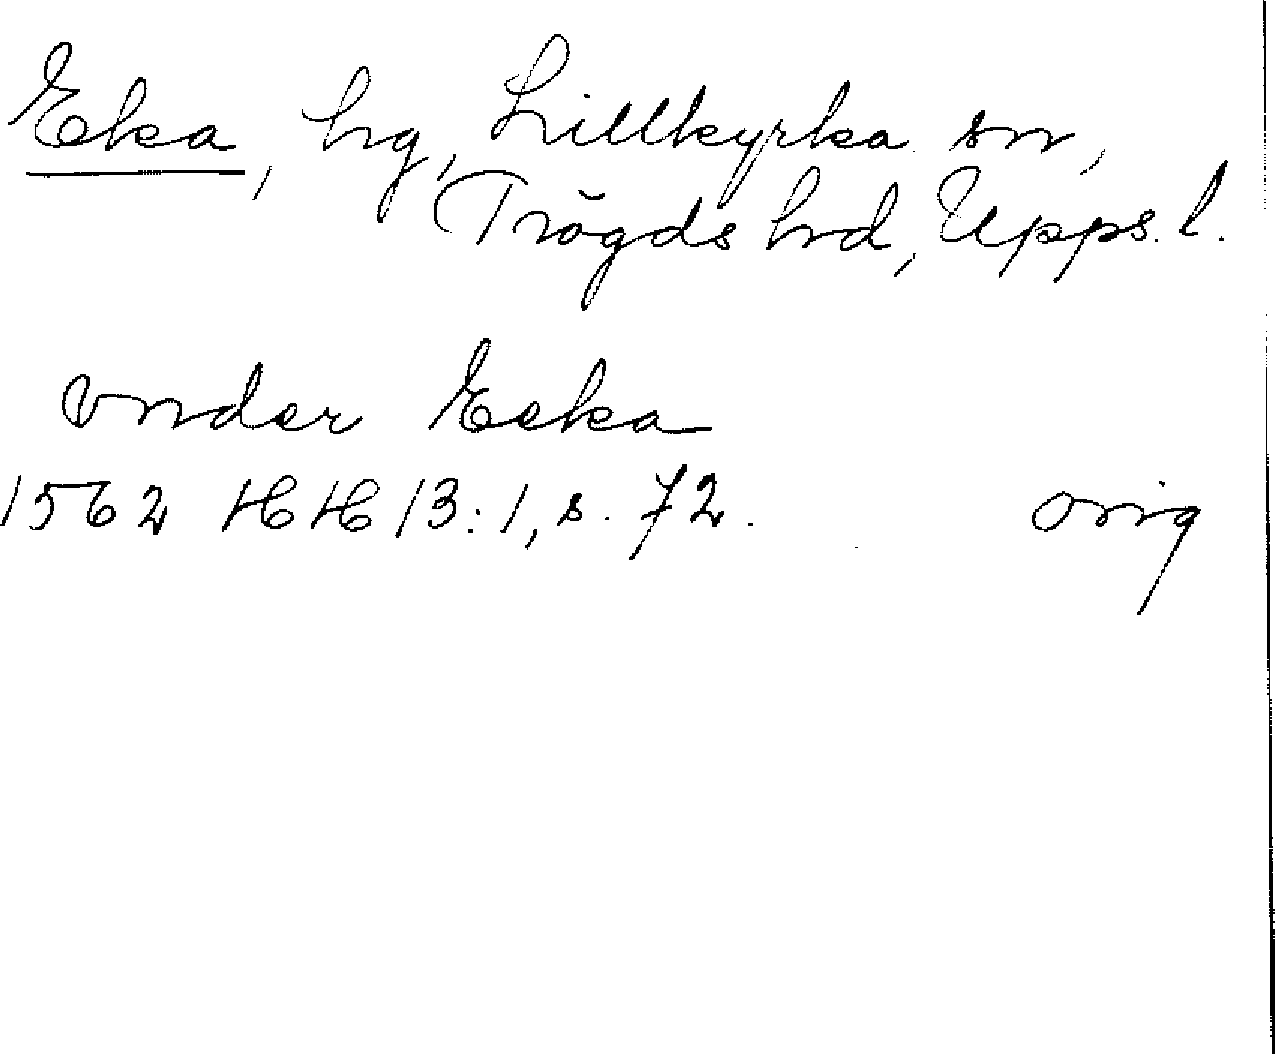 Eka, hg, Lillkyrka sn,
Trögds hd, Upps. l.
vnder Eeka
1562 HH 13:1, s. 72. orig